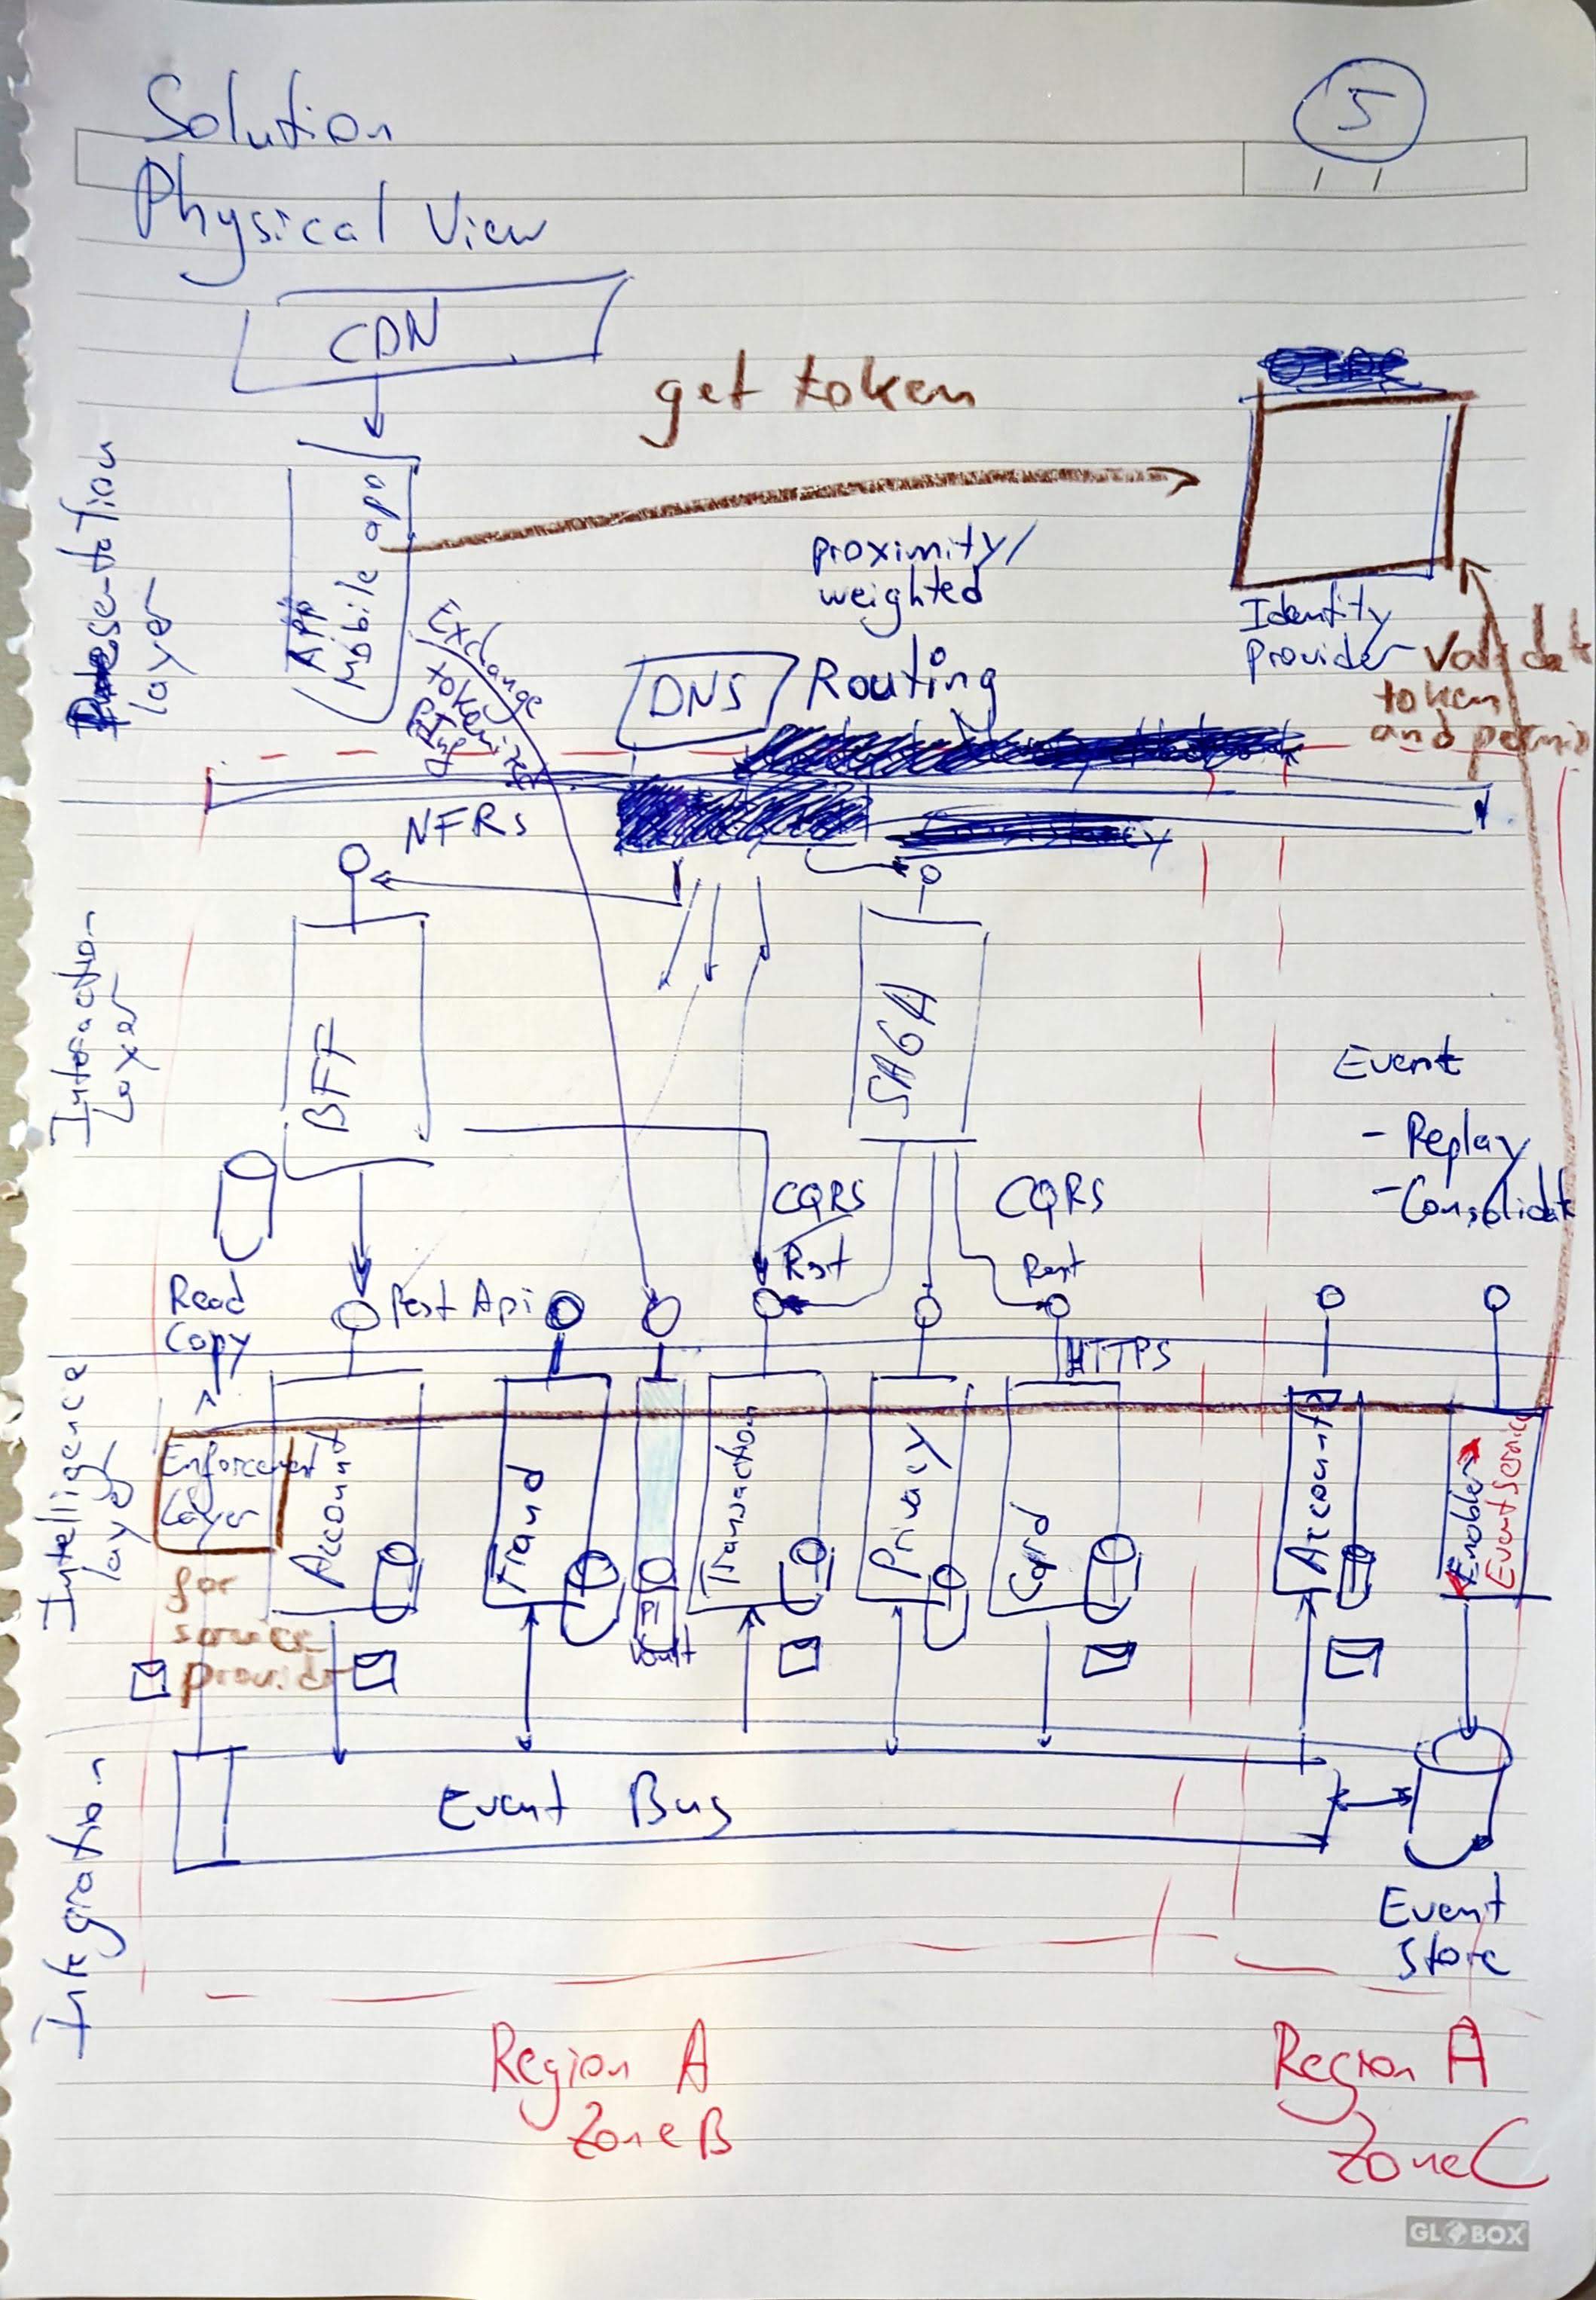 Solution
5
Physical View
CDN
get token
Presentation
layer
App
Mobile app
proximity/
weighted
Identity
Provider
Validate
token
and permis
Exchange
token
DNS
Routing
NFRs
Consistency
Interaction
Layer
BFF
SAGA
Event
- Replay
- Consolidate
CQRS
Rest
CQRS
Rest
Read
Copy
Rest Api
HTTPS
Intelligence
layer
Enforcement
Layer
for
service
provider
Account
Fraud
PII
Vault
Transaction
Privacy
Card
Account
Enabler
Event Service
Integration
Event Bus
Event
Store
Region A
Zone B
Region A
Zone C
GLOBOX